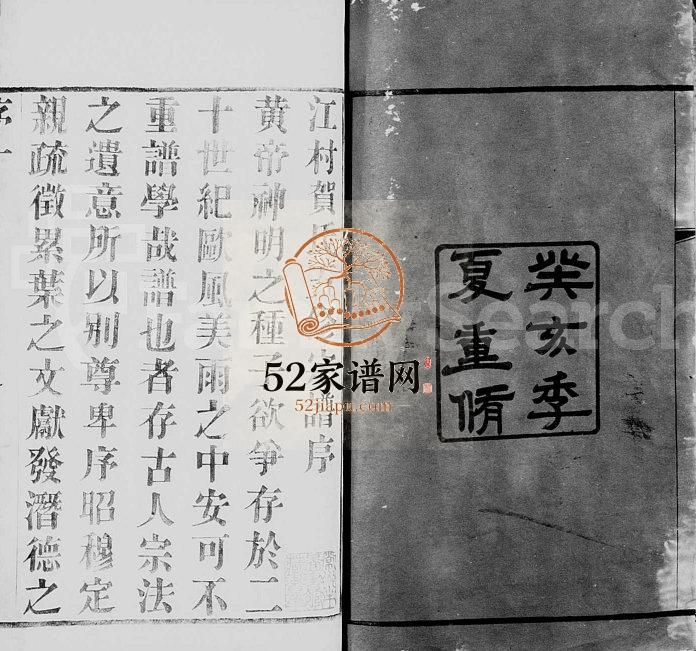 癸亥季
夏重脩
江村賀譜序
黃帝神明之種欲爭存於二
十世紀歐風美雨之中安可不
重譜學哉譜也者存古人宗法
之遺意所以别尊卑序昭穆定
親疏徵累葉之文獻發潛德之
序一
FamilySearch
52家谱网
52jiapu.com